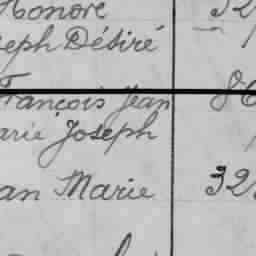 Honoré
seph Désiré
François Jean
arie Joseph
ean Marie 32